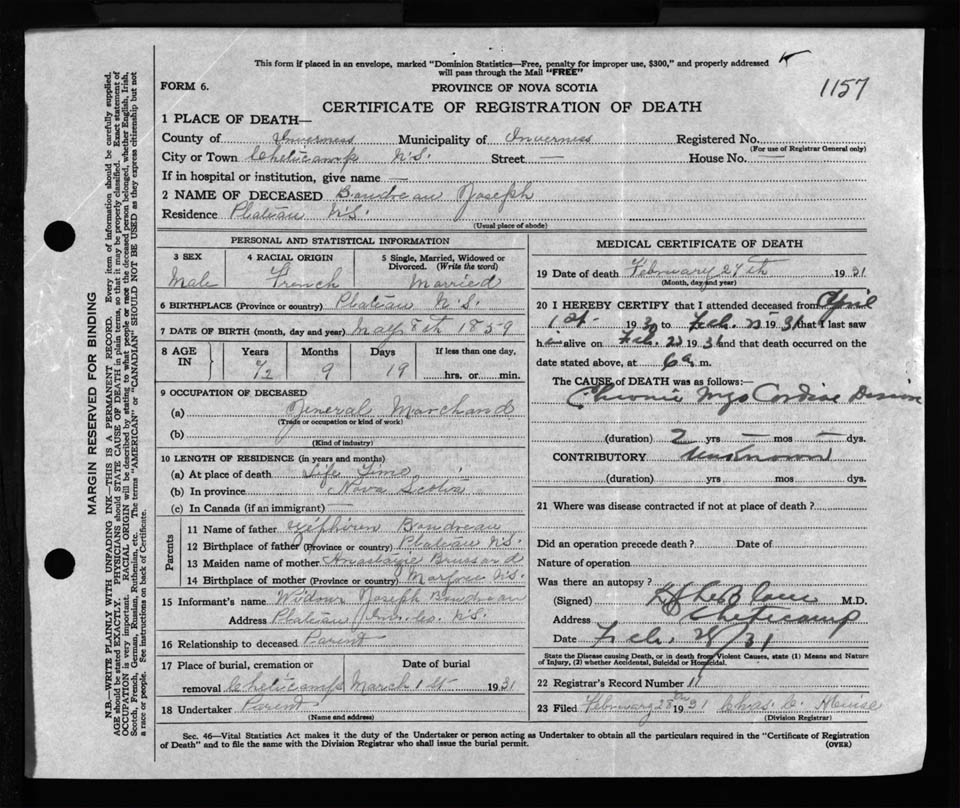 This form if placed in an envelope, marked "Dominion Statistics—Free, penalty for improper use, $300," and properly addressed
will pass through the Mail "FREE"
1157
FORM 6.
PROVINCE OF NOVA SCOTIA
CERTIFICATE OF REGISTRATION OF DEATH
1 PLACE OF DEATH—
County of Inverness Municipality of Inverness Registered No.
(For use of Registrar General only)
City or Town Cheticamp N.S. Street — House No. —
If in hospital or institution, give name —
2 NAME OF DECEASED Boudreau Joseph
Residence Plateau N.S.
(Usual place of abode)
PERSONAL AND STATISTICAL INFORMATION
3 SEX 4 RACIAL ORIGIN 5 Single, Married, Widowed or Divorced. (Write the word)
Male French Married
6 BIRTHPLACE (Province or country) Plateau N.S.
7 DATE OF BIRTH (month, day and year) May 8th 1859
8 AGE IN Years Months Days If less than one day,
9 19 hrs. or min.
9 OCCUPATION OF DECEASED
(a) General Marchand
(Trade or occupation or kind of work)
(b)
(Kind of industry)
10 LENGTH OF RESIDENCE (in years and months)
(a) At place of death Life Time
(b) In province Nova Scotia
(c) In Canada (if an immigrant) —
Parents
11 Name of father Zéphiren Boudreau
12 Birthplace of father (Province or country) Plateau N.S.
13 Maiden name of mother Anastazie Brussard
14 Birthplace of mother (Province or country) Margree N.S.
15 Informant's name Widow Joseph Boudreau
Address Plateau Inv. Co. N.S.
16 Relationship to deceased Parent
17 Place of burial, cremation or removal Date of burial
Cheticamp March 1st 1931
18 Undertaker Parent
(Name and address)
MEDICAL CERTIFICATE OF DEATH
19 Date of death February 27th 1931
(Month, day and year)
20 I HEREBY CERTIFY that I attended deceased from April
1st 1930 to Feb. 1931 that I last saw
him alive on Feb. 1931 and that death occurred on the
date stated above, at 6 a m.
The CAUSE of DEATH was as follows:—
Chronic Myo Cardiac
(duration) 2 yrs — mos — dys.
CONTRIBUTORY unknown
(duration) yrs mos dys.
21 Where was disease contracted if not at place of death?
Did an operation precede death? Date of
Nature of operation
Was there an autopsy?
(Signed) M.D.
Address Cheticamp
Date Feb. 28/31
State the Disease causing Death, or in death from Violent Causes, state (1) Means and Nature
of Injury, (2) whether Accidental, Suicidal or Homicidal.
22 Registrar's Record Number 11
23 Filed February 28th 1931 Chas. C.
(Division Registrar)
Sec. 46—Vital Statistics Act makes it the duty of the Undertaker or person acting as Undertaker to obtain all the particulars required in the "Certificate of Registration
of Death" and to file the same with the Division Registrar who shall issue the burial permit.
(OVER)
MARGIN RESERVED FOR BINDING
N.B.—WRITE PLAINLY WITH UNFADING INK—THIS IS A PERMANENT RECORD. Every item of information should be carefully supplied.
AGE should be stated EXACTLY. PHYSICIANS should STATE CAUSE OF DEATH in plain terms, so that it may be properly classified. Exact statement of
OCCUPATION is very important. RACIAL ORIGIN will be described by stating to what people or race the deceased person belonged, whether English, Irish,
Scotch, French, German, Russian, Ruthenian, etc. The terms "AMERICAN" or "CANADIAN" SHOULD NOT BE USED as they express citizenship but not
a race or people. See instructions on back of Certificate.